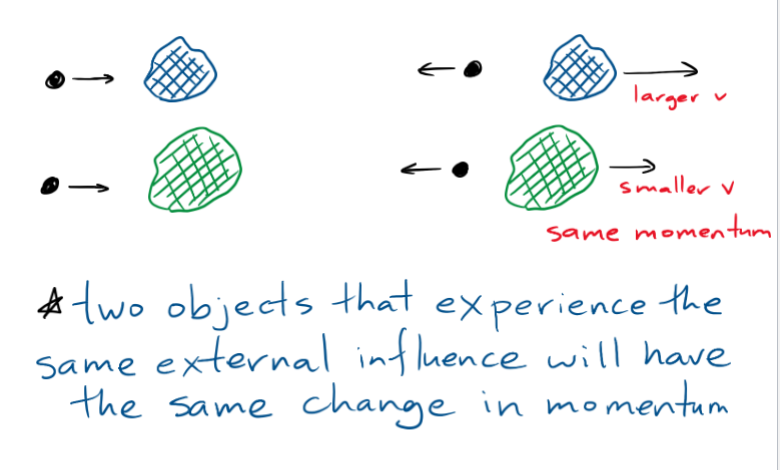 larger v
smaller v
same momentum
☆ two objects that experience the
same external influence will have
the same change in momentum